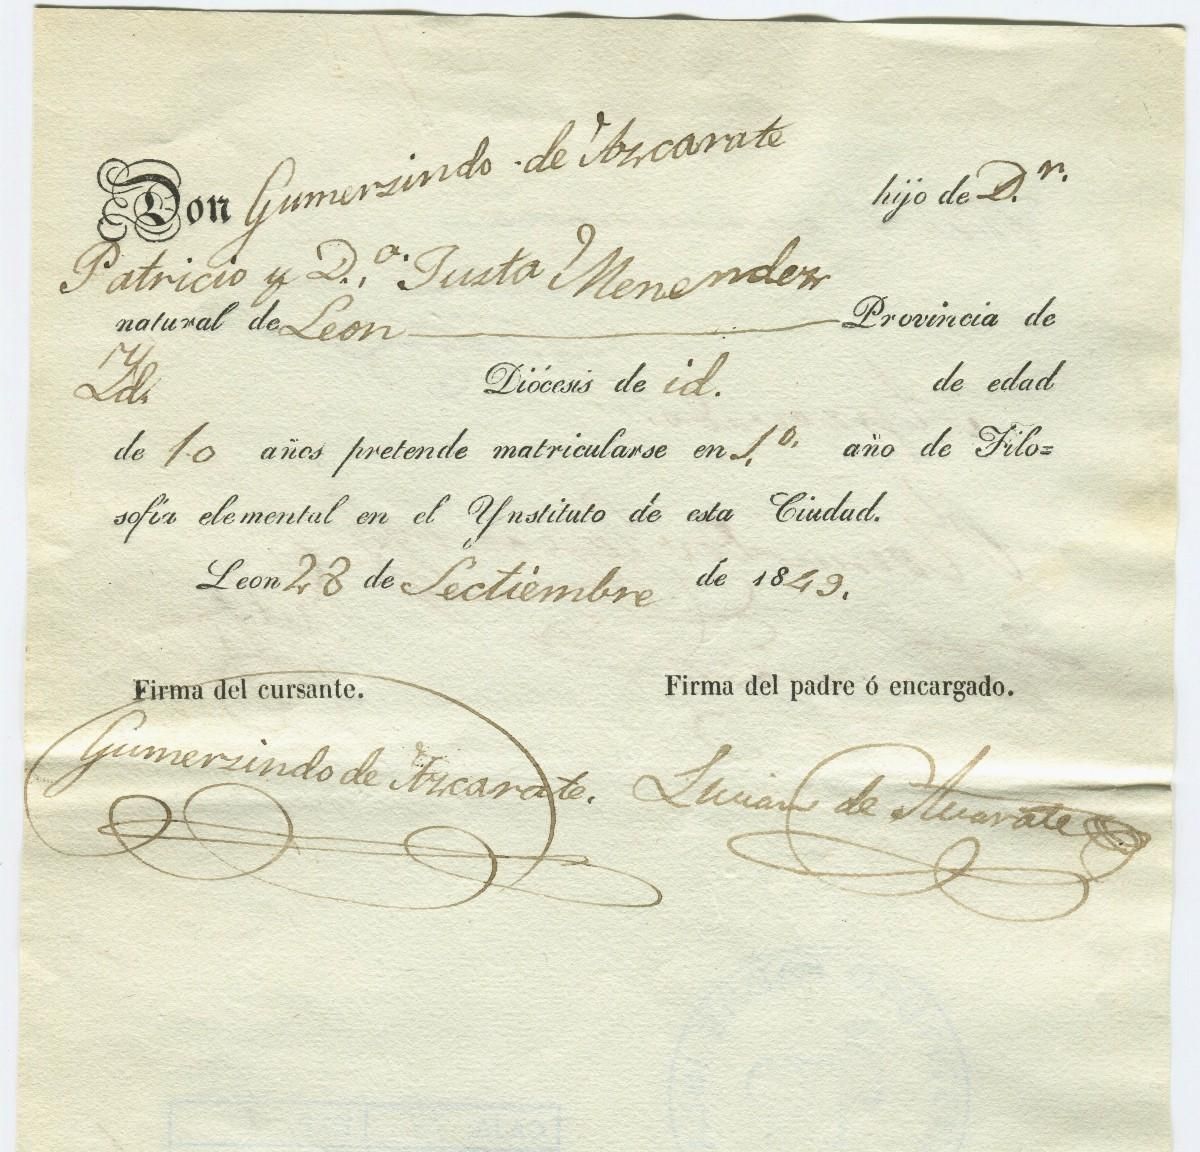 Don Gumersindo de Azcarate hijo de D.n
Patricio y D.a Justa Menendez
natural de Leon Provincia de
Yd. Diócesis de id. de edad
de 10 años pretende matricularse en 1.o año de Filo=
sofía elemental en el Ynstituto de esta Ciudad.
Leon 28 de Sectiembre de 1849.
Firma del cursante. Firma del padre ó encargado.
Gumersindo de Azcarate. de Azcarate